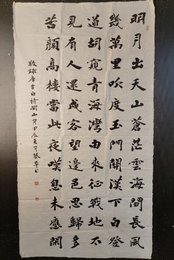 明月出天山蒼茫雲海間長風
幾萬里吹度玉門關漢下白登
道胡窺青海灣由來征戰地不
見有人還戍客望邊色思歸多
苦顏高樓當此夜嘆息未應閑
唐李白詩關山月甲辰夏